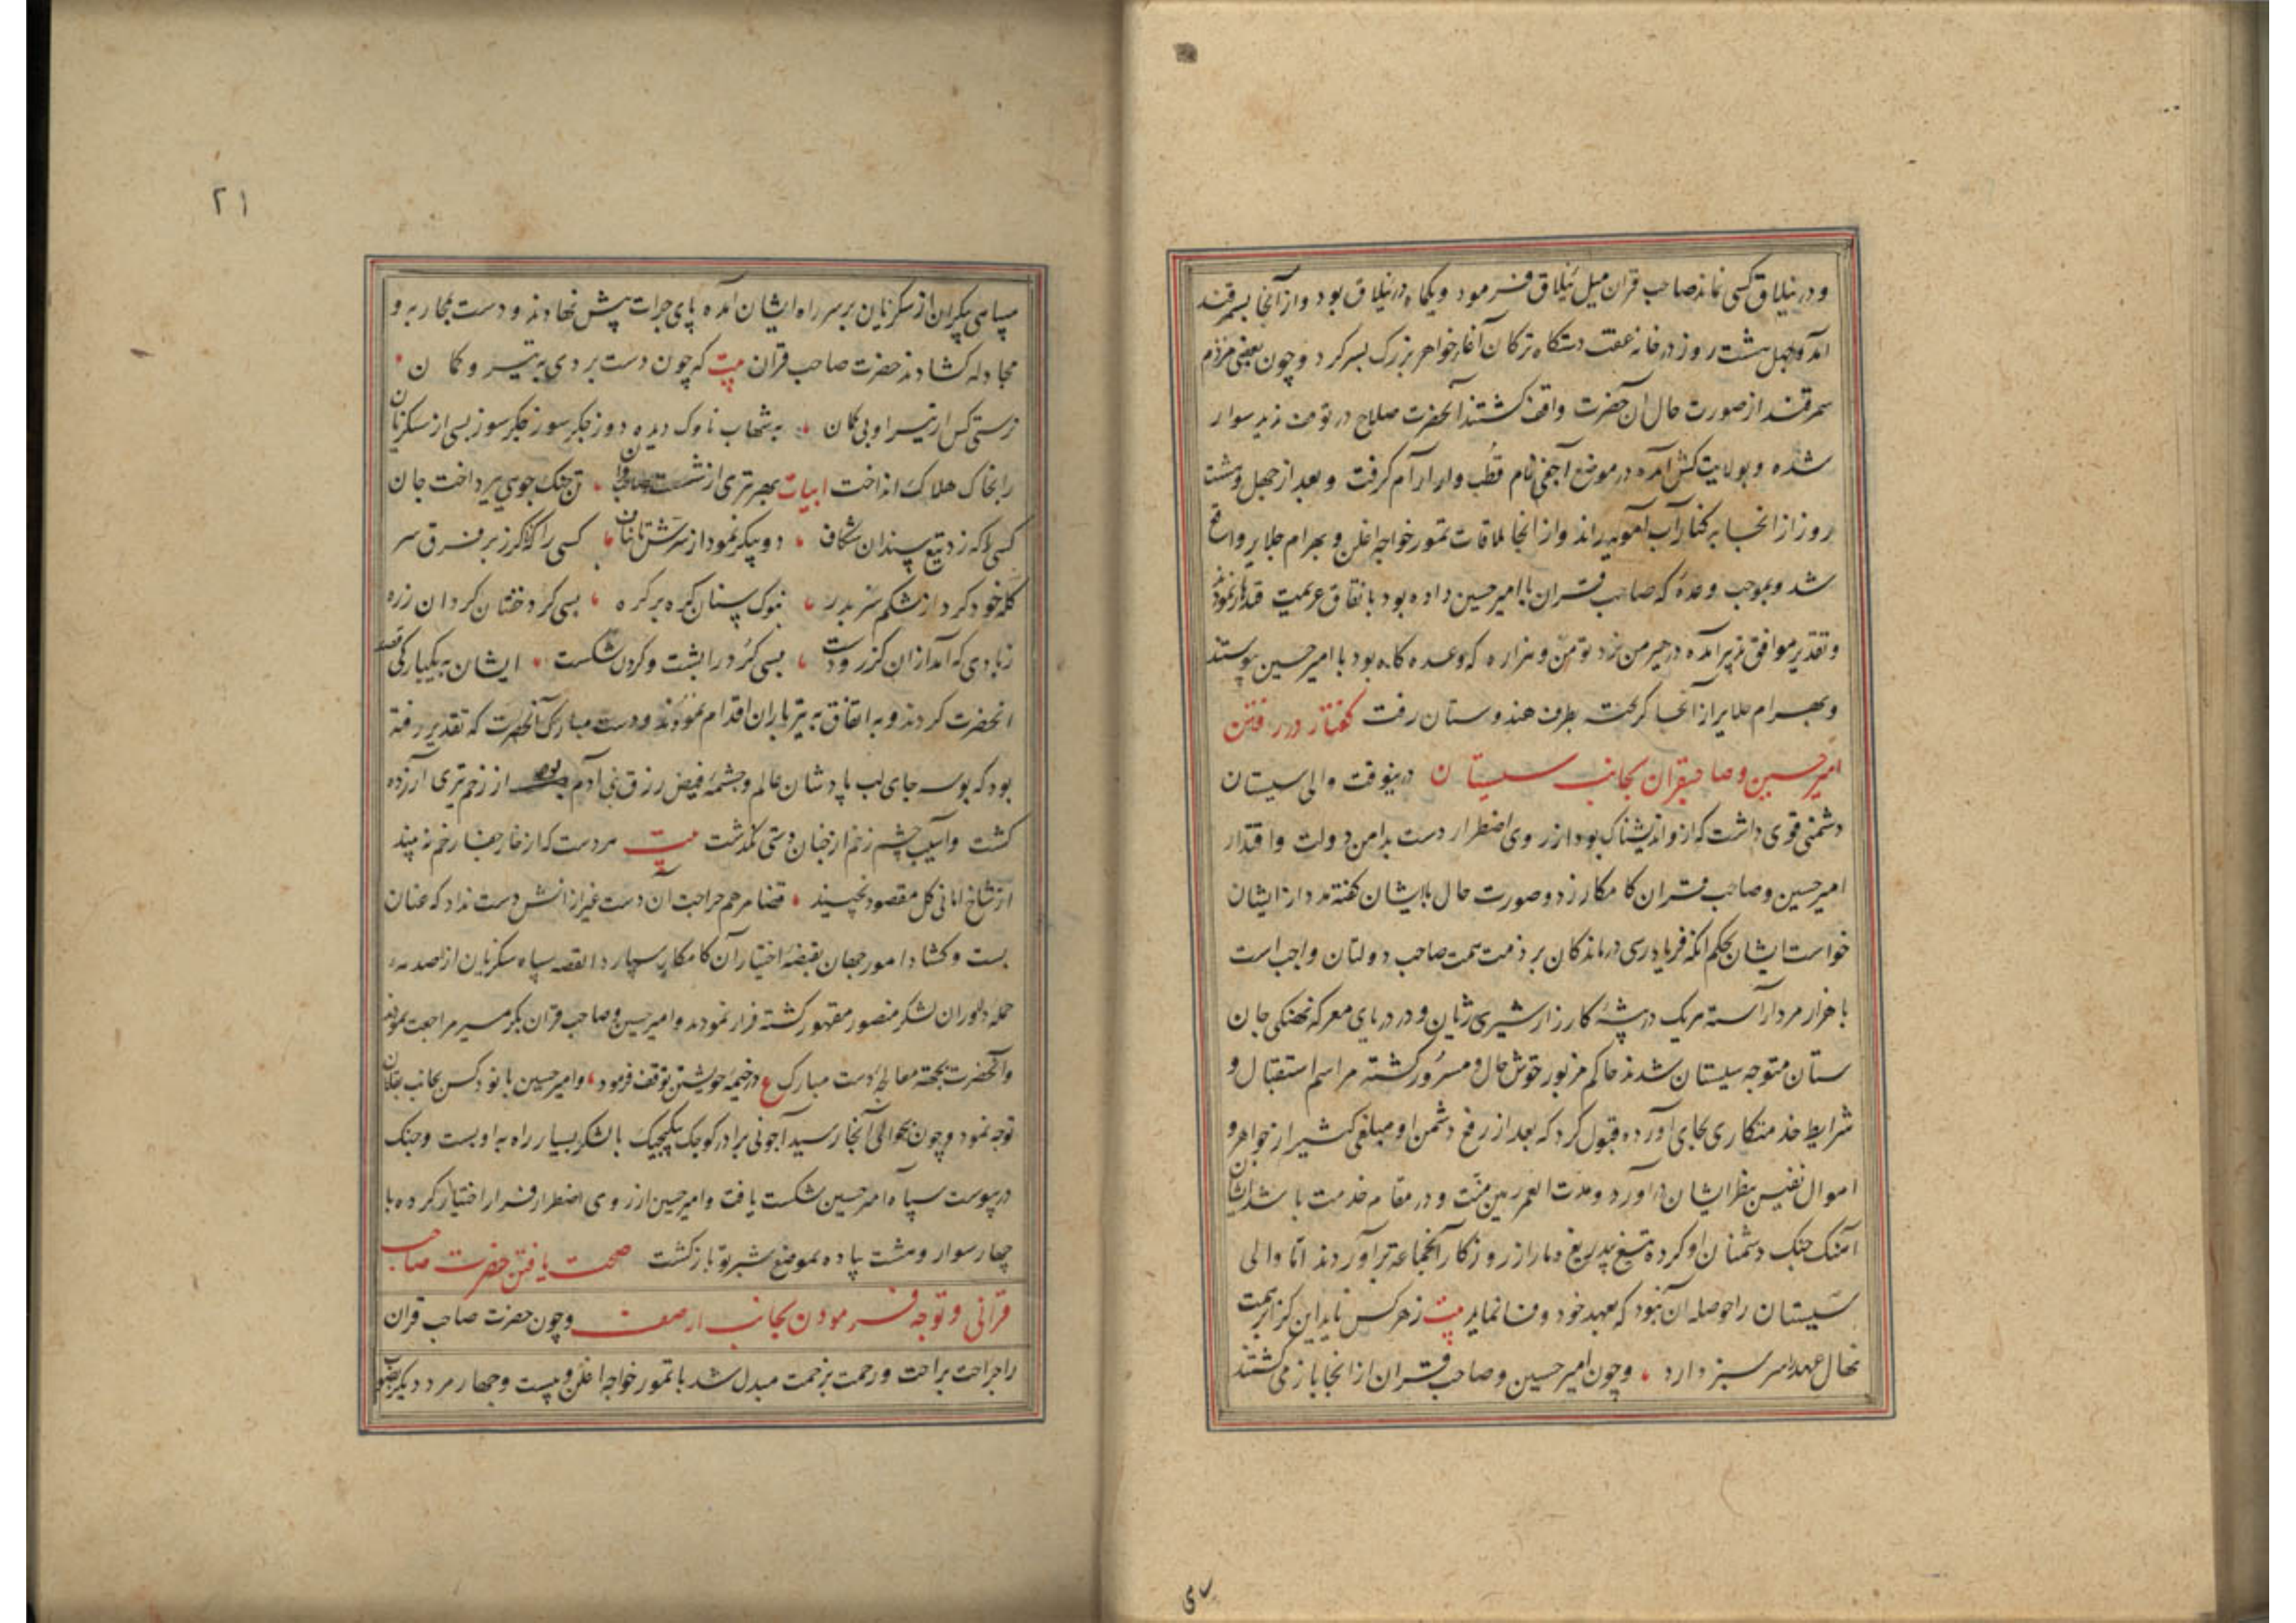 و در ییلاق کسی نماند صاحب قران میل ییلاق فرمود و یکماه در ییلاق بود و از آنجا بسمرقند
آمد و چهل هشت روز در خانه عفت دستکاه ترکان آغا خواهر بزرک بسر کرد و چون بعضی مردم
سمرقند از صورت حال آن حضرت واقف کشتند آنحضرت صلاح در توقف ندید سوار
شده و بولایت کش آمده در موضع اجفی نام قطب وار آرام کرفت و بعد از چهل و هشت
روز از انجا به کنار آب آمویه راند و از انجا ملاقات تمور خواجه اغلن و بهرام جلایر واقع
شد و بموجب وعده که صاحب قران با امیر حسین داده بود باتفاق عزیمت قندهار نمودند
و تقدیر موافق تدبیر آمده در حیرمن نزد تومن و هزاره که وعده کاه بود با امیر حسین پیوستند
و بهرام جلایر از آنجا کریخته بطرف هندوستان رفت کفتار در رفتن
امیر حسین و صاحبقران بجانب سیستان درینوقت والی سیستان
دشمنی قوی داشت که ازو اندیشناک بود از روی اضطرار دست بدامن دولت و اقتدار
امیر حسین و صاحب قران کامکار زد و صورت حال با ایشان کفته مدد از ایشان
خواست ایشان بحکم آنکه فریادرسی درماندکان بر ذمت همت صاحب دولتان واجب است
با هزار مرد آراسته هریک در بیشهٔ کارزار شیری ژیان و در دریای معرکه نهنکی جان
ستان متوجه سیستان شدند حاکم مزبور خوش حال و مسرور کشته مراسم استقبال و
شرایط خدمتکاری بجای آورده قبول کرد که بعد از رفع دشمن او مبلغی کثیر از جواهر و
اموال نفیس بنظر ایشان درآورد و مدت العمر رهین منت و در مقام خدمت باشد ایشان
آهنک جنک دشمنان او کرده بتیغ بیدریغ دمار از روزکار آنجماعه برآوردند اما والی
سیستان را حوصله آن نبود که بعهد خود وفا نماید بیت ز هر کس ناید این کز ابر همت
نهال عهد را سر سبز دارد و چون امیر حسین و صاحب قران از انجا باز می کشتند
۲۱
سپاهی بیکران از سکزیان بر سر راه ایشان آمده پای جرات پیش نهادند و دست بمحاربه و
مجادله کشادند حضرت صاحب قران بیت که چون دست بردی به تیر و کمان
نرستی کس از تیر او بی کمان به شهاب ناوک دیده دوز جکر سوز بسی از سکزیان
را بخاک هلاک انداخت ابیات بهر تیری از شست تن جنک جوی بپرداخت جان
کسی را که زد تیغ سندان شکاف دو پیکر نمود از سرش تا بناف کسی را که کرز بر فرق سر
کله خود کرد از شکم سر بدر بنوک سنان کره بر کره بسی کرد خفتان کردان زره
زبادی که آمد ازان کرز و دست بسی کرد را پشت و کردن شکست ایشان به یکبارکی قصد
آنحضرت کردند و به اتفاق به تیر باران اقدام نمودند و دست مبارک آنحضرت که تقدیر رفته
بود که بوسه جای لب پادشاهان عالم و چشمهٔ فیض رزق بنی آدم بود از زخم تیری آزرده
کشت و آسیب چشم زخم از چنان دستی بکذشت بیت مرد ست که از خار جفا رخم نه بیند
از شاخ امانی کل مقصود نچیند قضا مرهم جراحت آن دست غیر ازانش دست نداد که عنان
بست و کشاد امور جهان بقبضهٔ اختیار آن کامکار سپارد القصه سپاه سکزیان از صدمه
حملهٔ دلوران لشکر منصور مقهور کشته فرار نمودند و امیر حسین و صاحب قران بکرمسیر مراجعت نمودند
و آنحضرت بجهة معالجهٔ دست مبارک در خیمهٔ خویشتن توقف فرمود و امیر حسین با نود کس بجانب بقلان
توجه نمود و چون بحوالی آنجا رسید آجونی برادر کوچک بیکیجک با لشکر بسیار راه به او بست و جنک
درپیوست سپاه امیر حسین شکست یافت و امیر حسین از روی اضطرار فرار اختیار کرده با
چهار سوار و هشت پیاده بموضع شبرتو بازکشت صحت یافتن حضرت صاحب
قرانی و توجه فرمودن بجانب ارصف و چون حضرت صاحب قران
را جراحت براحت و رحمت بزحمت مبدل شد با تمور خواجه اغلن و بیست و چهار مرد دیکر